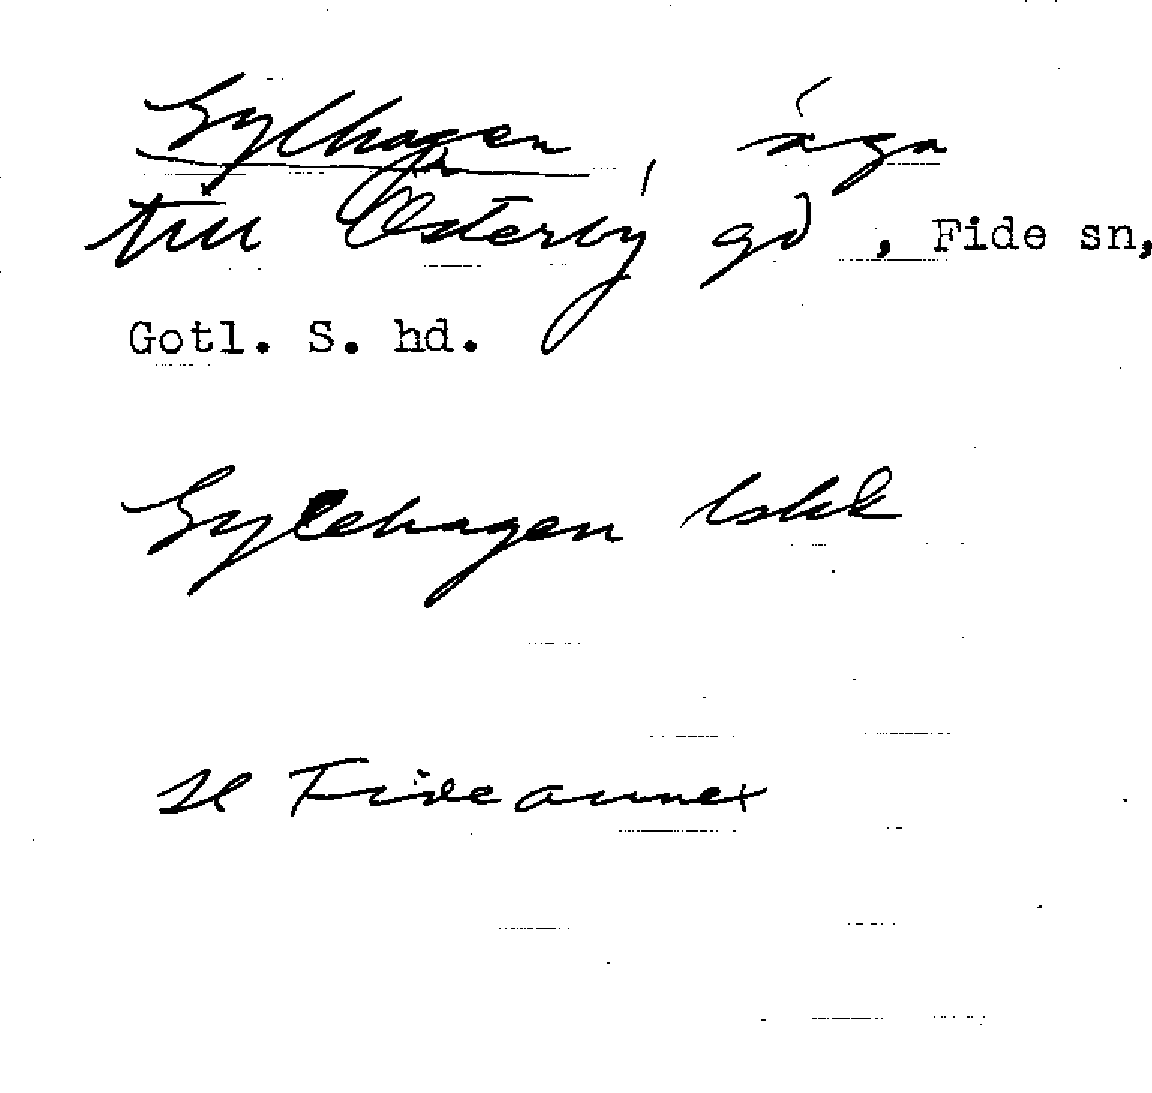 Gylhagen, äga
till Österby gd, Fide sn,
Gotl. S. hd.
Gylehagen lskk
se Fide annex